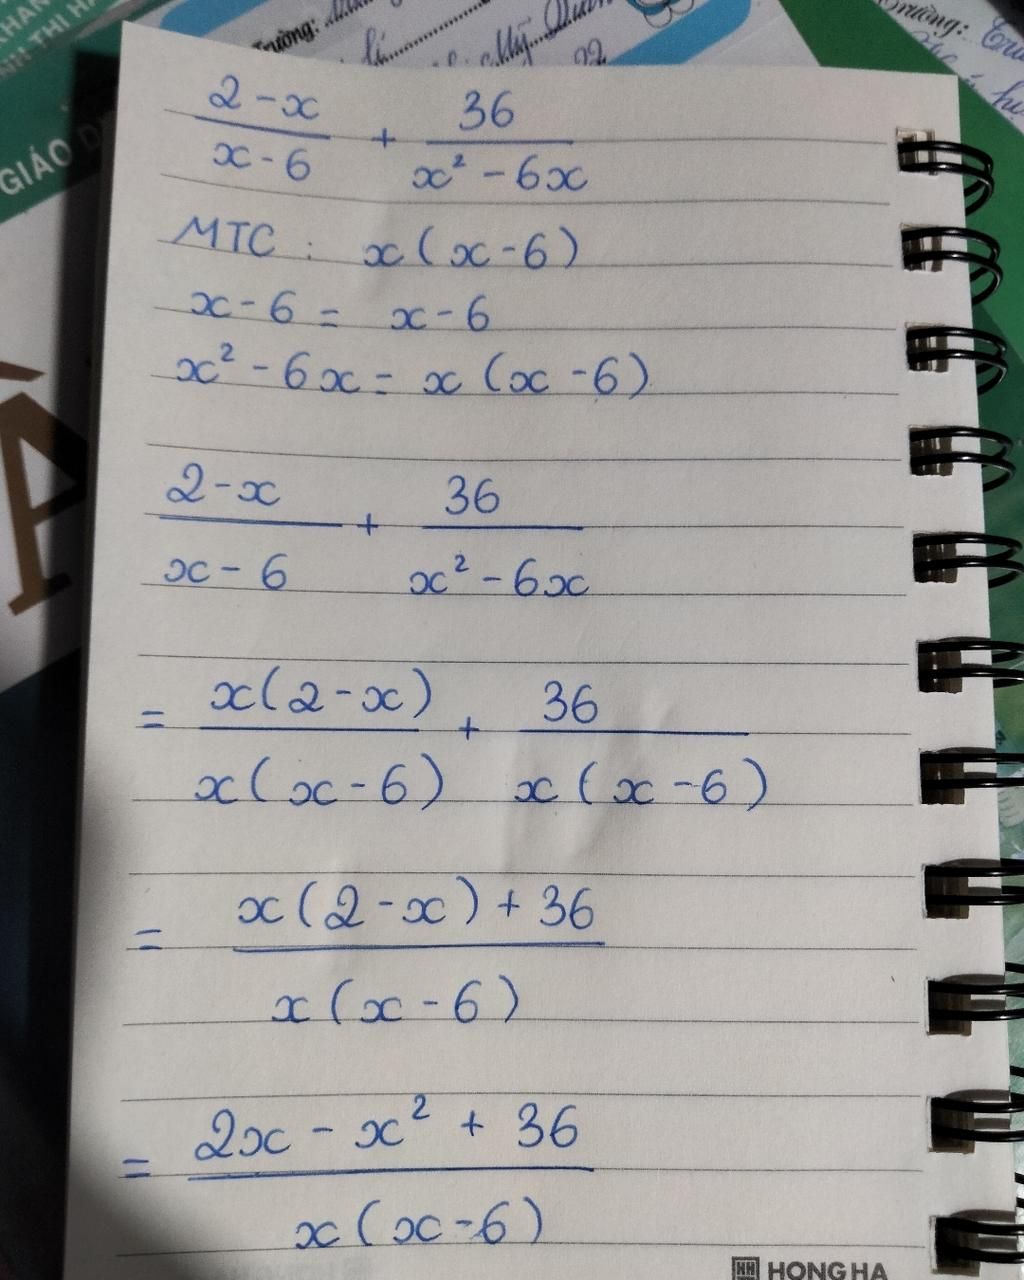 GIÁO D
Trường:
Mỹ
22
Trường:
2 - x / x - 6 + 36 / x² - 6x
MTC : x ( x - 6 )
x - 6 = x - 6
x² - 6x = x ( x - 6 )
2 - x / x - 6 + 36 / x² - 6x
= x ( 2 - x ) / x ( x - 6 ) + 36 / x ( x - 6 )
= x ( 2 - x ) + 36 / x ( x - 6 )
= 2x - x² + 36 / x ( x - 6 )
HONG HA